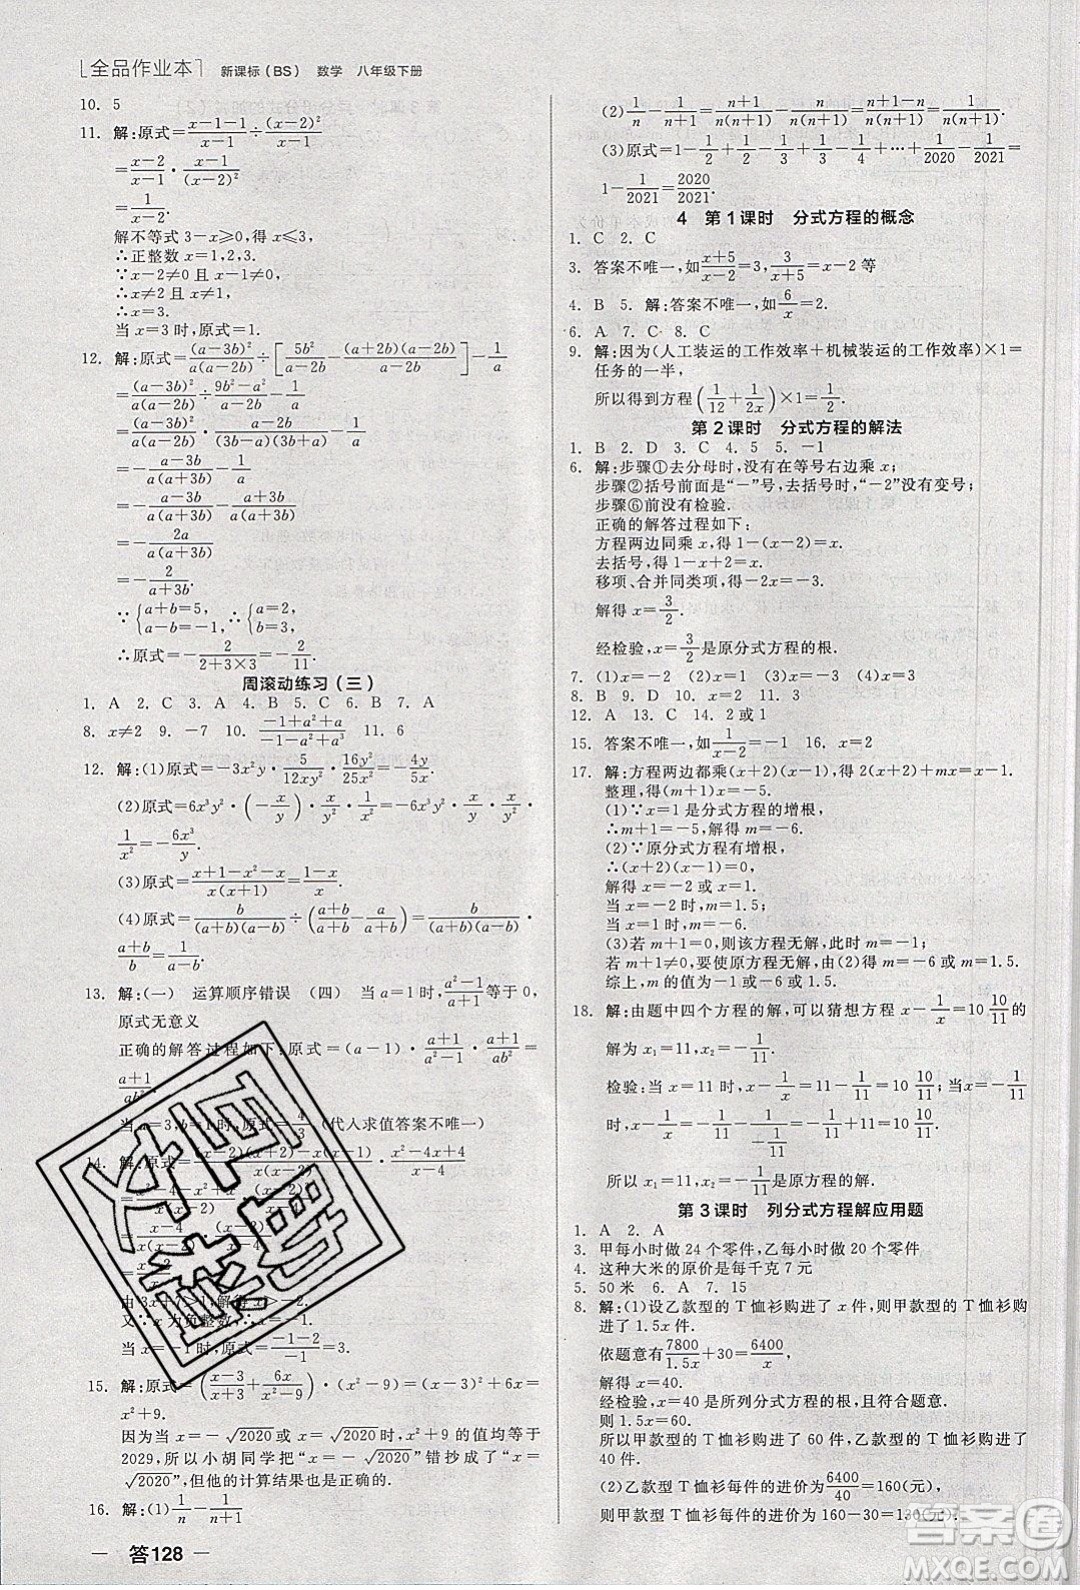 全品作业本 新课标(BS) 数学 八年级下册
10. 5
11. 解:原式=\frac{x-1-1}{x-1}÷\frac{(x-2)²}{x-1}
=\frac{x-2}{x-1}·\frac{x-1}{(x-2)²}
=\frac{1}{x-2}.
解不等式 3-x≥0,得 x≤3.
∴正整数 x=1,2,3.
∵x-2≠0 且 x-1≠0,
∴x≠2 且 x≠1,
∴x=3.
当 x=3 时,原式=1.
12. 解:原式=\frac{(a-3b)²}{a(a-2b)}÷[\frac{5b²}{a-2b}-\frac{(a+2b)(a-2b)}{a-2b}]-\frac{1}{a}
=\frac{(a-3b)²}{a(a-2b)}÷\frac{9b²-a²}{a-2b}-\frac{1}{a}
=\frac{(a-3b)²}{a(a-2b)}·\frac{a-2b}{(3b-a)(3b+a)}-\frac{1}{a}
=-\frac{a-3b}{a(a+3b)}-\frac{1}{a}
=-\frac{a-3b}{a(a+3b)}-\frac{a+3b}{a(a+3b)}
=-\frac{2a}{a(a+3b)}
=-\frac{2}{a+3b}.
∵{a+b=5, a-b=-1, ∴{a=2, b=3,
∴原式=-\frac{2}{2+3×3}=-\frac{2}{11}.
周滚动练习(三)
1. A 2. C 3. A 4. B 5. C 6. B 7. A
8. x≠2 9. -7 10. \frac{-1+a²+a}{-1-a²+a³} 11. 6
12. 解:(1)原式=-3x²y·\frac{5}{12xy²}·\frac{16y²}{25x²}=-\frac{4y}{5x}.
(2)原式=6x³y²·(-\frac{x}{y})·\frac{x}{y²}·\frac{1}{x²}=-6x³y²·\frac{x}{y}·\frac{x}{y²}·
\frac{1}{x²}=-\frac{6x³}{y}.
(3)原式=\frac{x+1-x²-x²+x}{(x-1)²}.
(4)原式=\frac{b}{(a+b)(a-b)}÷(\frac{a+b}{a+b}-\frac{a}{a+b})=\frac{b}{(a+b)(a-b)}·
\frac{a+b}{b}=\frac{1}{a-b}.
13. 解:(一) 运算顺序错误 (四) 当 a=1 时,\frac{a²-1}{a+1}等于 0,
原式无意义
正确的解答过程如下:原式=(a-1)·\frac{a+1}{a-1}·\frac{a+1}{ab²}=
\frac{a+1}{ab²}.
当 a=3,b=1 时,原式=\frac{4}{3}(代入求值答案不唯一)
14. 解:原式=\frac{(x-2)(x+2)-x(x-1)}{x(x-2)²}·\frac{x²-4x+4}{x-4}
由 3x+7>1,解得 x>-2.
又∵x 为负整数,∴x=-1.
当 x=-1 时,原式=\frac{-1-2}{-1}=3.
15. 解:原式=(\frac{x-3}{x+3}+\frac{6x}{x²-9})·(x²-9)=(x-3)²+6x=
x²+9.
因为当 x=-√2020 或 x=√2020 时,x²+9 的值均等于
2029,所以小胡同学把“x=-√2020”错抄成了“x=
√2020”,但他的计算结果也是正确的.
16. 解:(1)\frac{1}{n}-\frac{1}{n+1}
答128
(2)\frac{1}{n}-\frac{1}{n+1}=\frac{n+1}{n(n+1)}-\frac{n}{n(n+1)}=\frac{n+1-n}{n(n+1)}=\frac{1}{n(n+1)}.
(3)原式=1-\frac{1}{2}+\frac{1}{2}-\frac{1}{3}+\frac{1}{3}-\frac{1}{4}+…+\frac{1}{2020}-\frac{1}{2021}=
1-\frac{1}{2021}=\frac{2020}{2021}.
4 第 1 课时 分式方程的概念
1. C 2. C
3. 答案不唯一,如\frac{x+5}{x-2}=3,\frac{3}{x+5}=x-2 等
4. B 5. 解:答案不唯一,如\frac{6}{x}=2.
6. A 7. C 8. C
9. 解:因为(人工装运的工作效率+机械装运的工作效率)×1=
任务的一半,
所以得到方程(\frac{1}{12}+\frac{1}{2x})×1=\frac{1}{2}.
第 2 课时 分式方程的解法
1. B 2. D 3. C 4. 5 5. -1
6. 解:步骤①去分母时,没有在等号右边乘 x;
步骤②括号前面是“-”号,去括号时,“-2”没有变号;
步骤⑥前没有检验.
正确的解答过程如下:
方程两边同乘 x,得 1-(x-2)=x.
去括号,得 1-x+2=x.
移项、合并同类项,得-2x=-3.
解得 x=\frac{3}{2}.
经检验,x=\frac{3}{2}是原分式方程的根.
7. (1)x=-2 (2)x=4 (3)x=-3 (4)x=0
8. B 9. D 10. C 11. C
12. A 13. C 14. 2 或 1
15. 答案不唯一,如\frac{1}{x-2}=-1 16. x=2
17. 解:方程两边都乘(x+2)(x-1),得 2(x+2)+mx=x-1.
整理,得(m+1)x=-5.
(1)∵x=1 是分式方程的增根,
∴m+1=-5,∴m=-6.
(2)∵原分式方程有增根,
∴(x+2)(x-1)=0.
解得 x=-2 或 x=1.
当 x=-2 时,m=1.5;
当 x=1 时,m=-6.
(3)若 m+1=0,则该方程无解,此时 m=-1.
若 m+1≠0,要使原方程无解,由(2)得 m=-6 或 m=1.5.
综上,m 的值为-1 或-6 或 1.5.
18. 解:由题中四个方程的解,可以猜想方程 x-\frac{1}{x}=10\frac{10}{11}的
解为 x₁=11,x₂=-\frac{1}{11}.
检验:当 x=11 时,x-\frac{1}{x}=11-\frac{1}{11}=10\frac{10}{11};当 x=-\frac{1}{11}
时,x-\frac{1}{x}=-\frac{1}{11}+11=10\frac{10}{11},
所以 x=11,x=-\frac{1}{11}都是原方程的解.
第 3 课时 列分式方程解应用题
1. A 2. A
3. 甲每小时做 24 个零件,乙每小时做 20 个零件
4. 这种大米的原价是每千克 7 元
5. 50 米 6. A 7. 15
8. 解:(1)设乙款型的 T 恤衫购进了 x 件,则甲款型的 T 恤衫购进
了 1.5x 件.
依题意得\frac{7800}{1.5x}+30=\frac{6400}{x},
解得 x=40.
经检验,x=40 是所列分式方程的解,且符合题意.
则 1.5x=60.
所以甲款型的 T 恤衫购进了 60 件,乙款型的 T 恤衫购进了
40 件.
(2)乙款型 T 恤衫每件的进价为\frac{6400}{40}=160(元),
则甲款型 T 恤衫每件的进价为 160-30=130(元).
答案圈
MXQE.COM